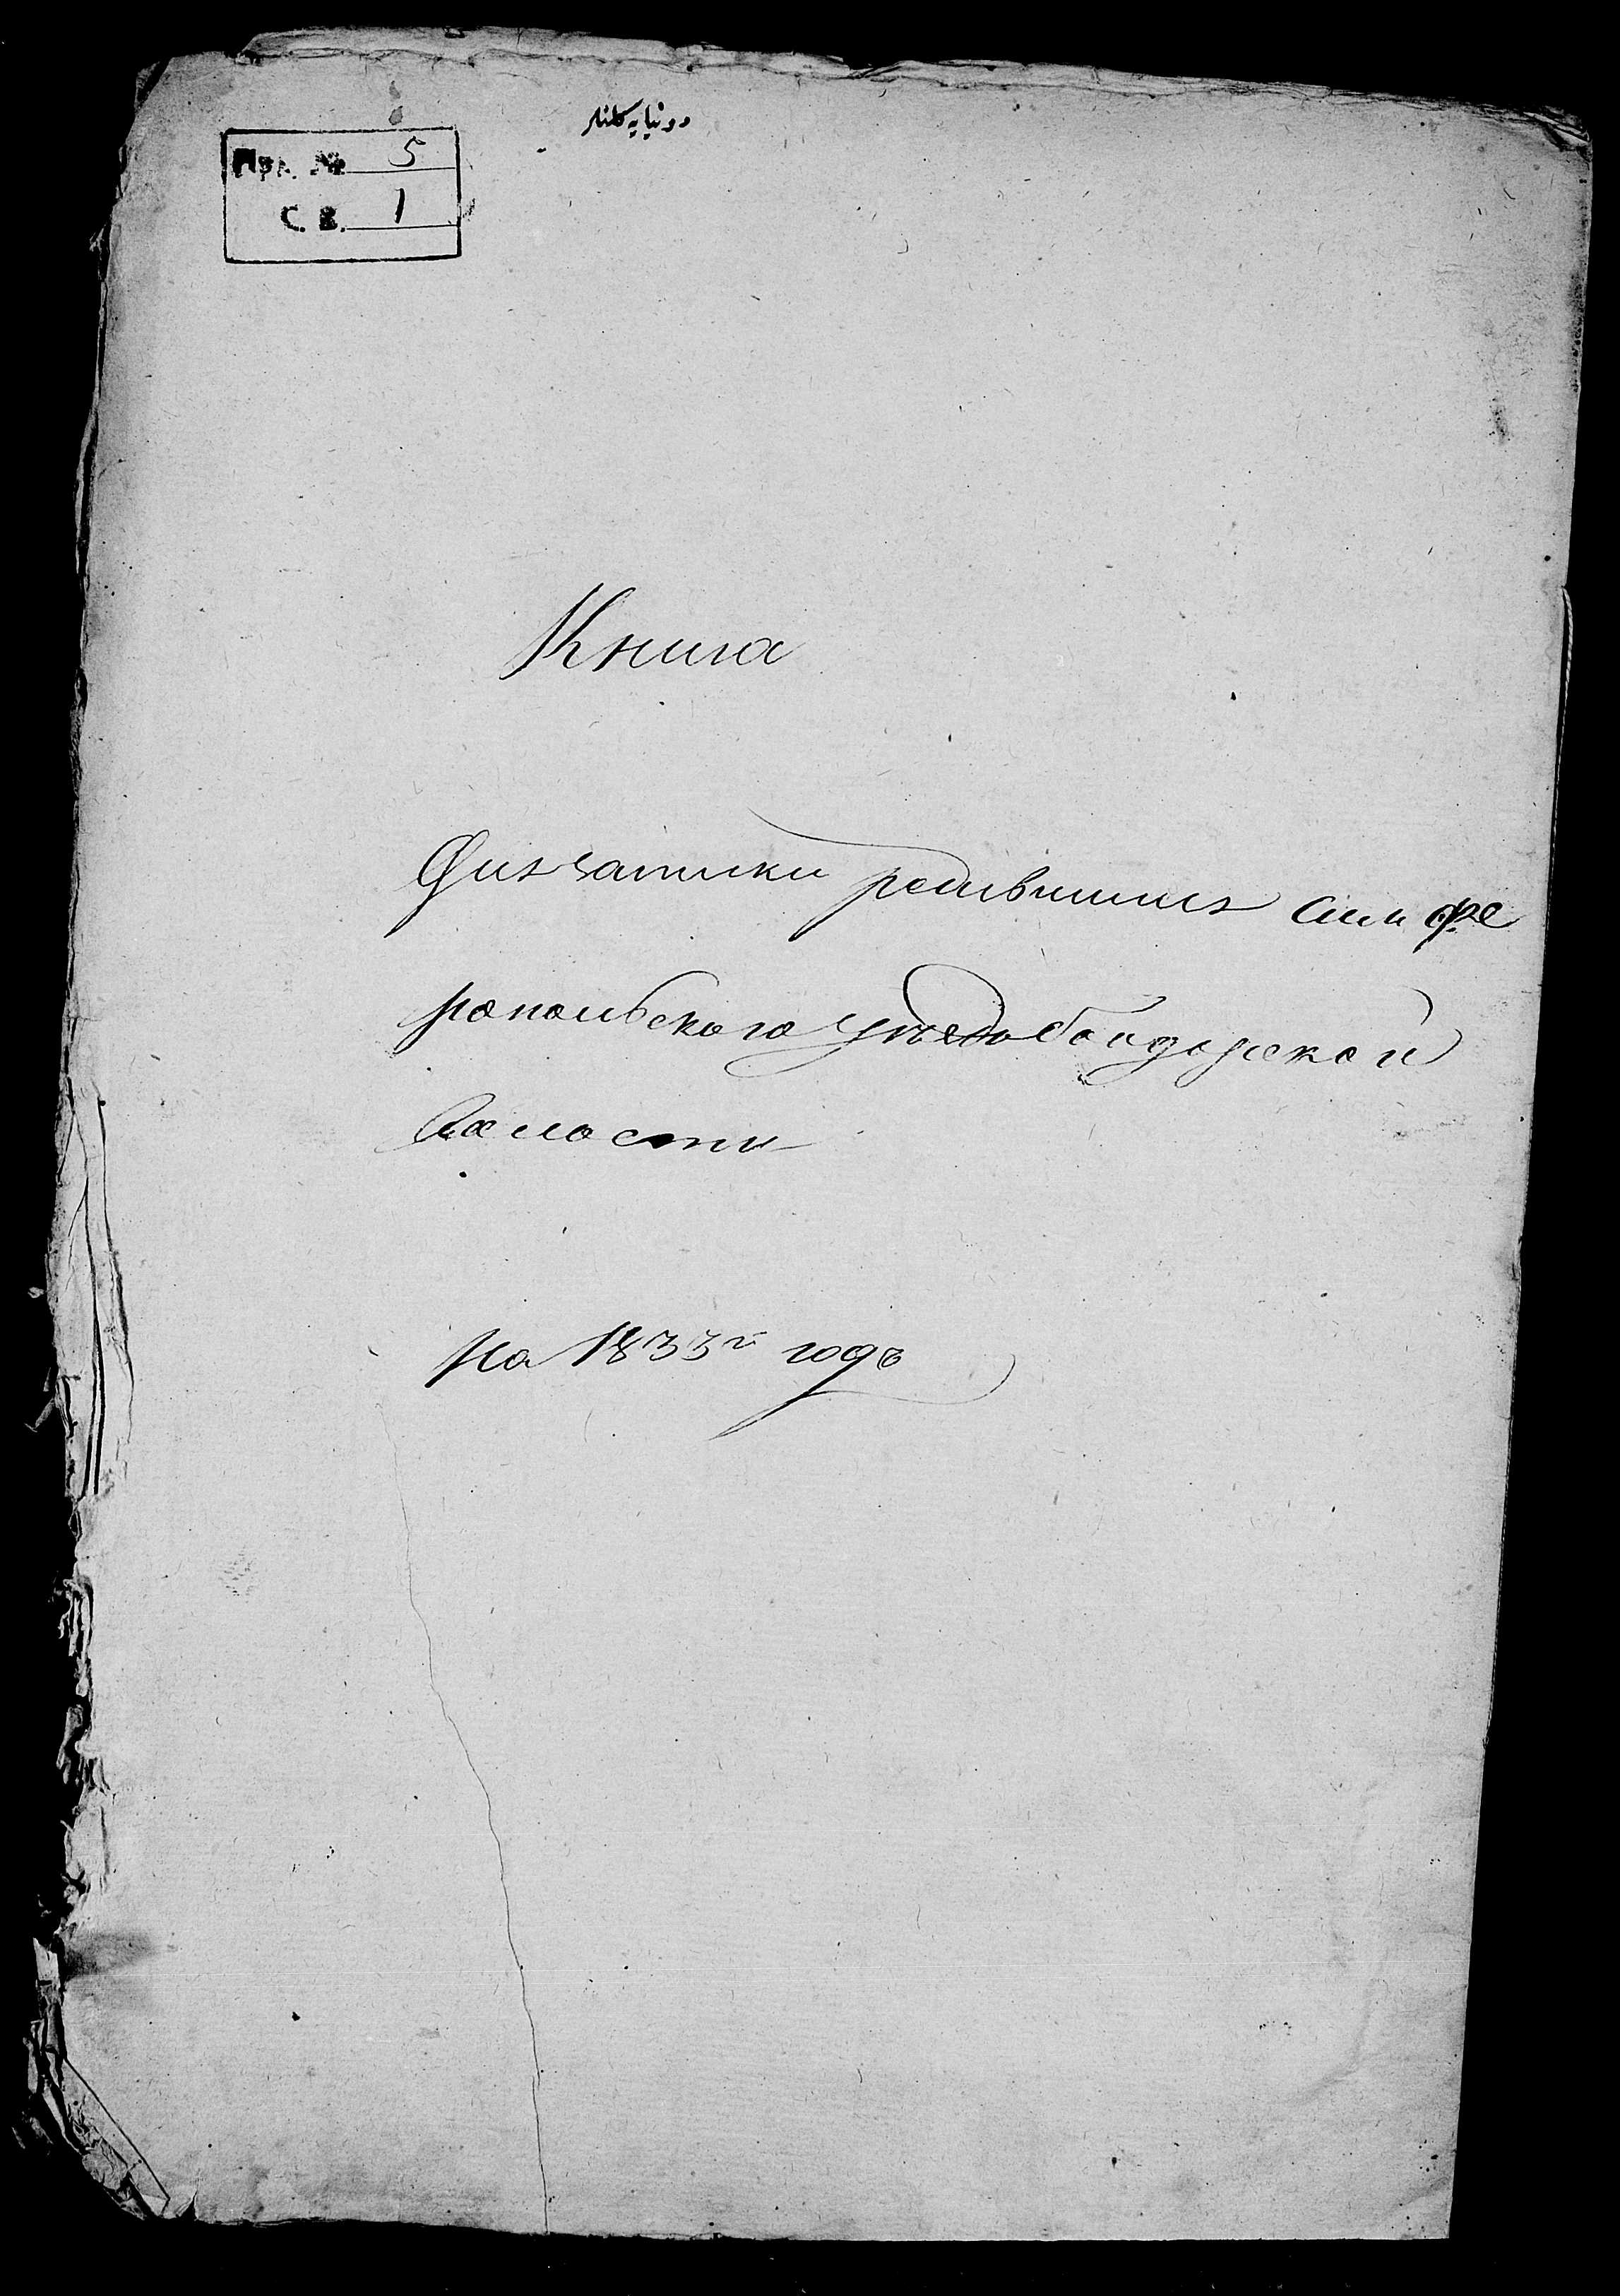 دونیایه کلنلر
Арх. № 5
С. В. 1
Книга
Для записки родившихъ симфе
ропольского уезда байдарской
Волости
на 1833й годъ